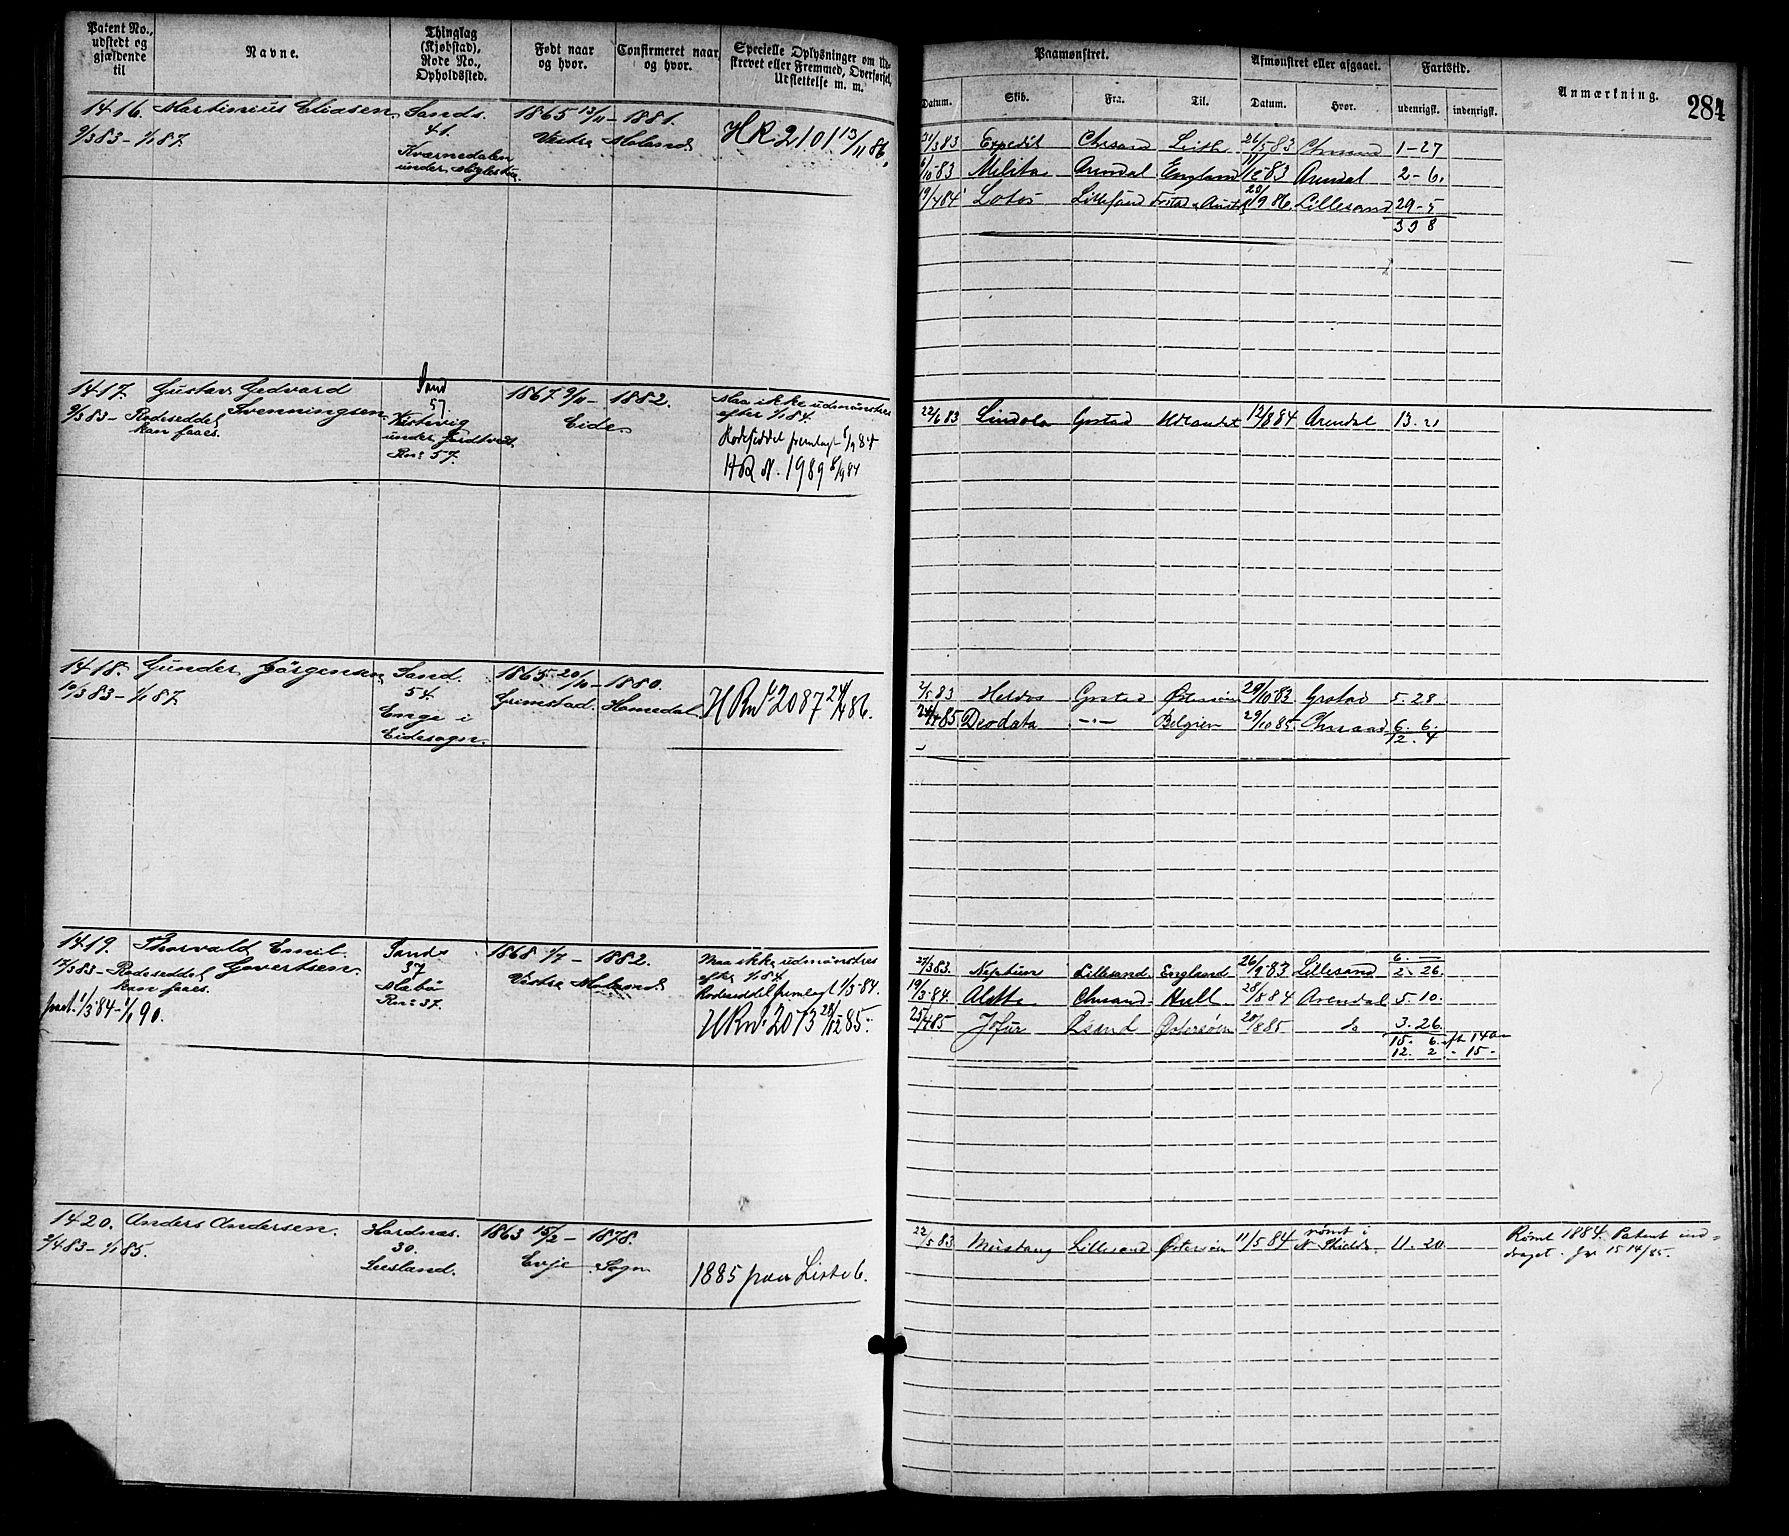 Patent No., udstedt og gjældende til
Navne.
Thinglag (Kjøbstad), Rode No., Opholdssted.
Født naar og hvor.
Confirmeret naar og hvor.
Specielle Oplysninger om Ud-
skrevet eller Fremmed, Overførsel,
Udslettelse m. m.
Paamønstret.
Afmønstret eller afgaaet.
Fartstid.
Anmærkning.
284
Datum. Skib. Fra. Til. Datum. Hvor. udenrigsk. indenrigsk.
1416. Martinius Eliasen Sands. 1865 13/11 - 1881.
9/3 83 - 1/1 87. 41. Vestre Moland HR 2101 13/11 86.
Kværnedalen
under
21/3 83 Expedit Chrsand Leith 26/5 83 Chrsand 1-27
6/10 83 Melita Arendal England 11/12 83 Arendal 2-6.
19/4 84 Lotos Lillesand 20/9 86. Lillesand 29-5
1417. Gustav Gedvard Sand 1867 9/11 - 1882. Maa ikke udmønstres
9/3 83 - Rodeseddel Svenningsen 57. Eide efter 1/1 84.
kan faaes. under
Rode 57. Rodeseddel fremlagt 8/9 84
HR N. 1989 8/9 84
22/6 83 Lindola Grstad Udlandet 12/8 84 Arendal 13. 21
1418. Gunder Jörgensen Sand. 1865 20/10 - 1880.
10/3 83 - 1/1 87. 54. Grimstad. Homedal HR No 2087 86.
Enge i
Eidesogn.
2/5 83 Heldos Grstad Østersøen 29/10 83 Grstad 5. 28
24/4 85 Deodata -"- Belgien 29/10 85 Chrsand 6. 6.
12. 4
1419. Thorvald Emil Sands 1868 1/7 - 1882. Maa ikke udmønstres
17/3 83 - Rodeseddel Govertsen 37 Vestre Moland efter 1/1 84.
kan faaes. Mebö Rodeseddel fremlagt 1/3 84.
pat. 1/3 84 - 1/1 90. Rode 37. HR No 2073 28/12 85.
27/3 83. Neptun Lillesand England 26/9 83 Lillesand 6. -
2. 26.
19/3 84. Aletta Chrsand Hull 28/8 84 Arendal 5. 10.
25/4 85 Jofur Østersøen 20/8 85 do 3. 26.
15. 6. eft 14 aar
12. 2 - 15 -
1420. Anders Andersen. Hordnæs. 1863 15/2 - 1878.
2/4 83 - 1/1 85. 30. Evje Sogn
Liesland. 1885 paa Liste 6.
22/5 83 Mustang Lillesand Østersøen 11/5 84 rømt i 11. 20
N Shields.
Rømt 1884. Patent ind-
draget. Jr 15 14/85.